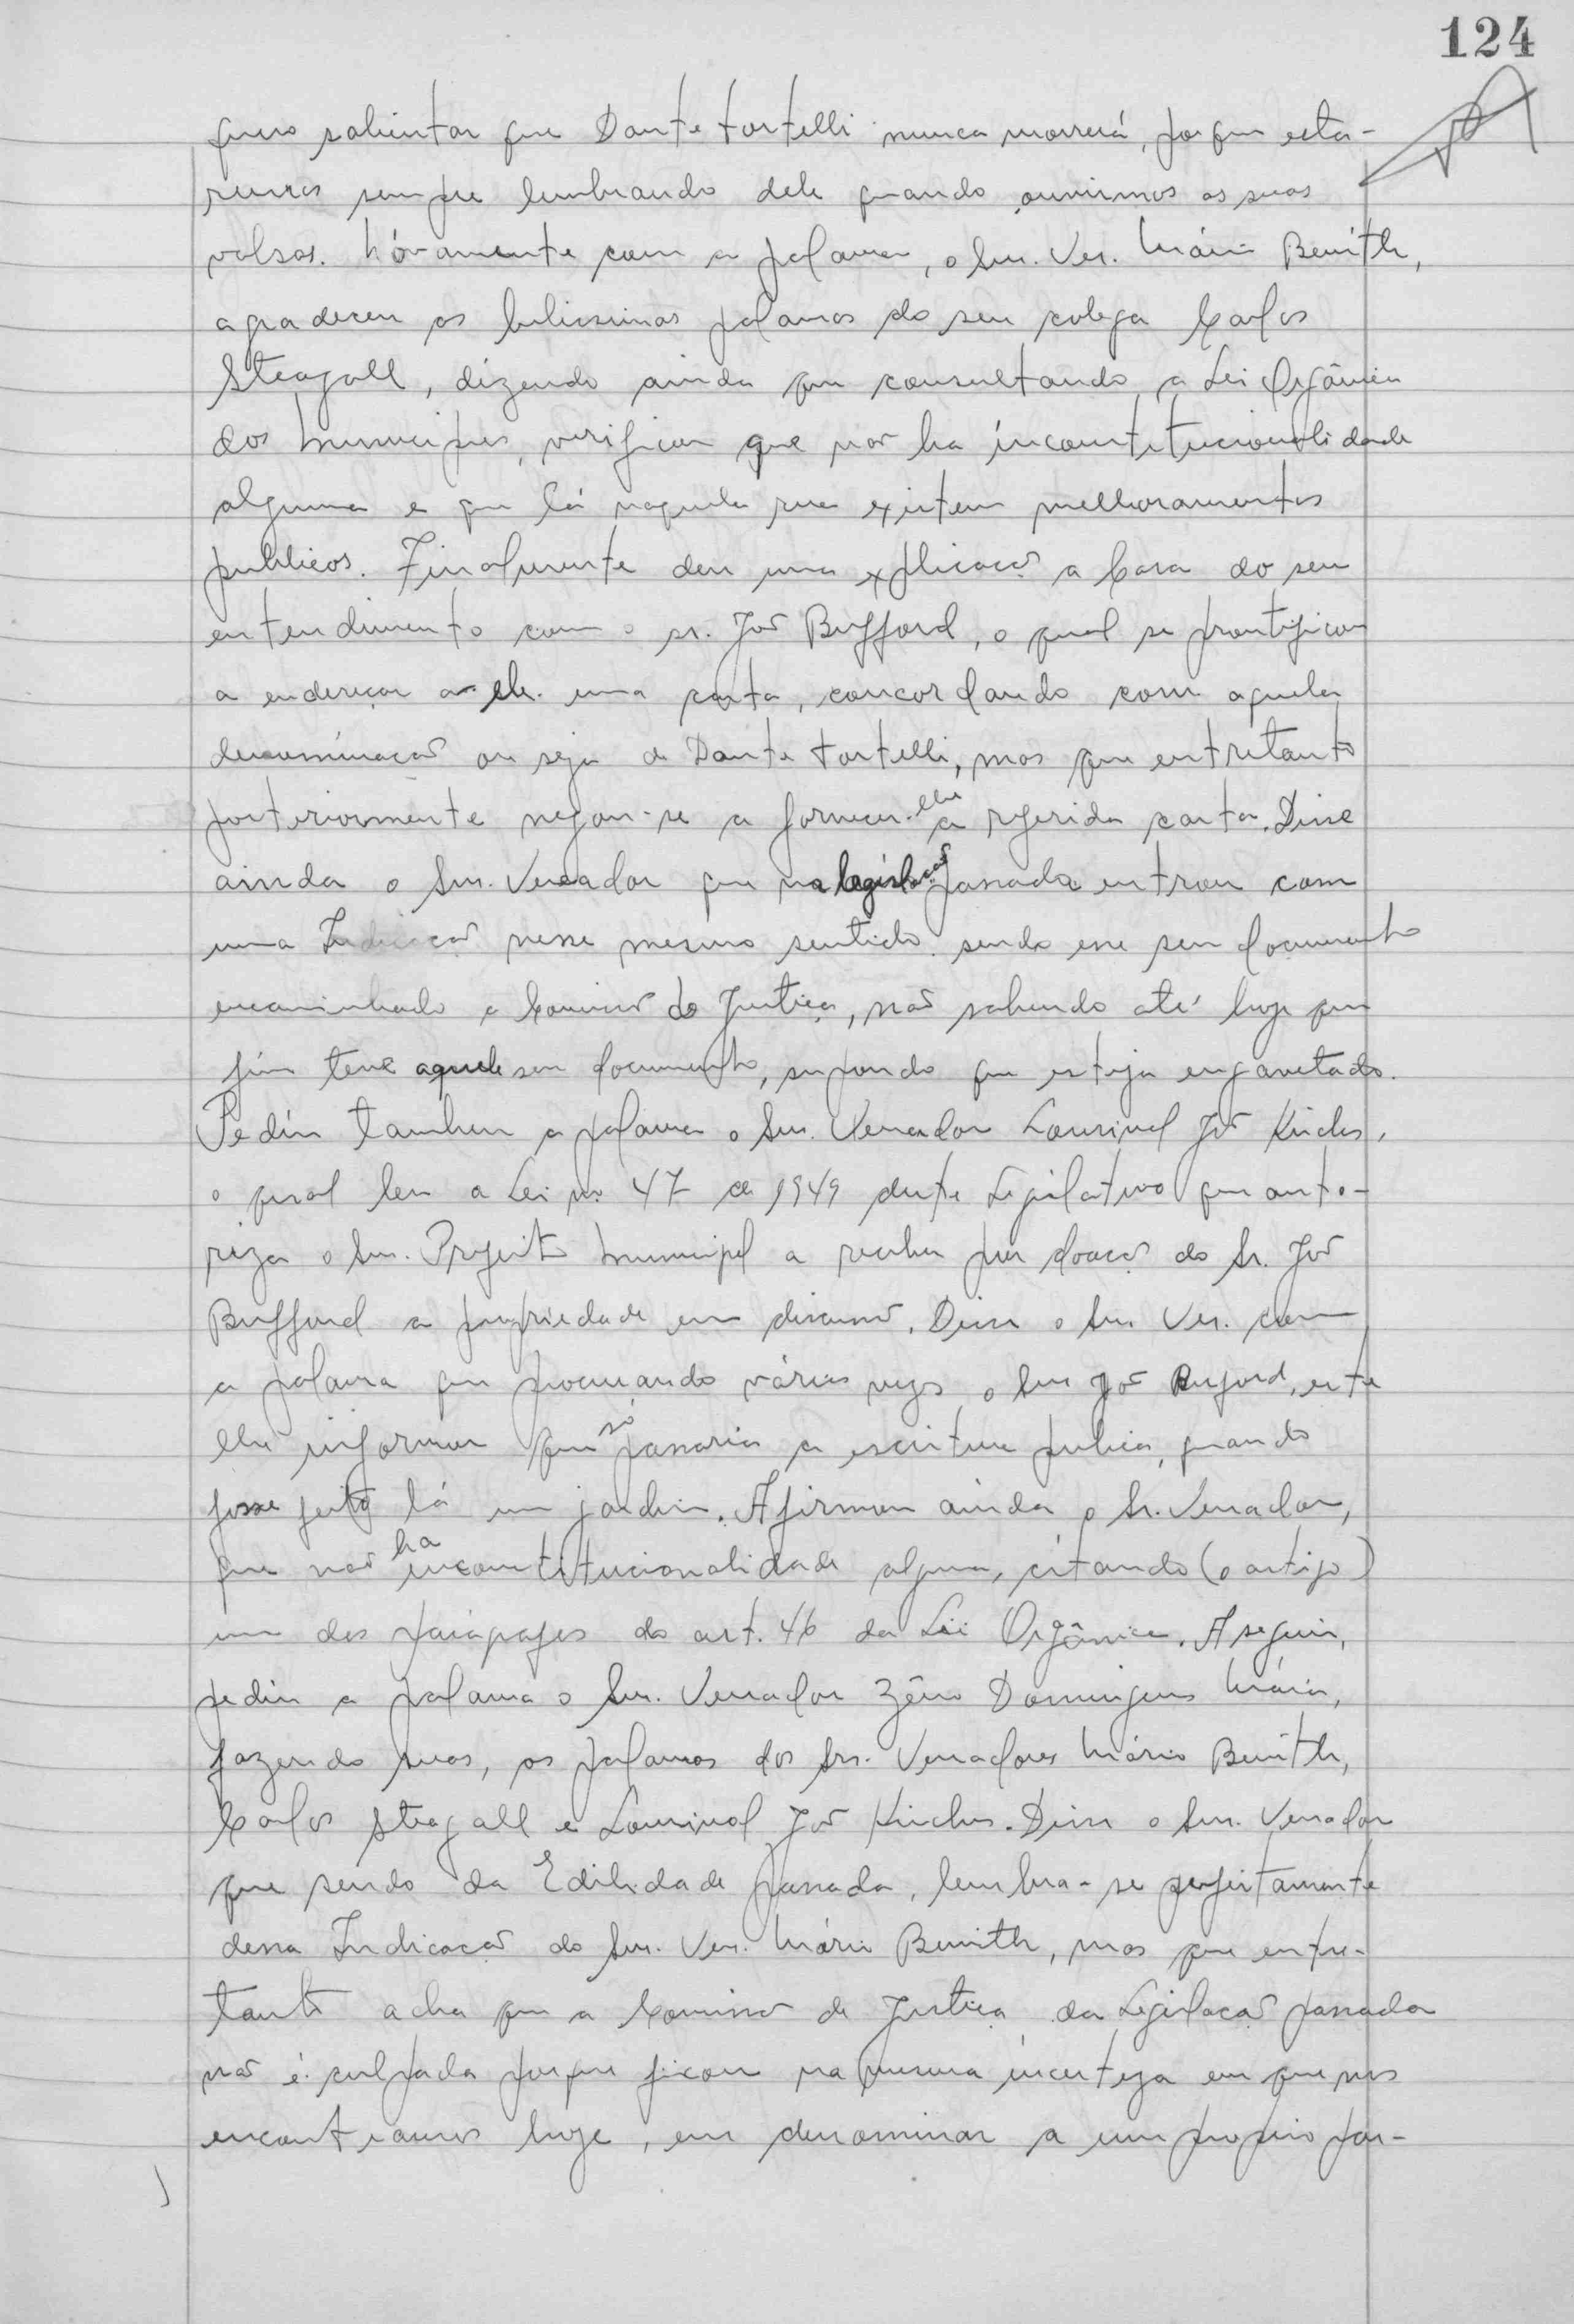 124
quero salientar que Dante Tortelli nunca morrerá, porque esta-
remos sempre lembrando dele quando ouvirmos as suas
valsas. Nóvamente com a palavra, o Snr. Ver. Mário Benith,
agradeceu as belissimas palavras do seu colega Carlos
Steagall, dizendo ainda que consultando a Lei Orgânica
dos Municipios, verificou que não ha inconstitucionalidade
alguma e que lá naquela rua existem melhoramentos
publicos. Finalmente deu uma explicação a Casa do seu
entendimento com o sr. José Bufford, o qual se prontificou
a endereçar a ele uma carta, concordando com aquela
denominação ou seja de Dante Tortelli, mas que entretanto
posteriormente negou-se a fornecer-lhe a referida carta. Disse
ainda o Snr. Vereador que na legislação passada entrou com
uma Indicação nesse mesmo sentido sendo esse seu documento
encaminhado a Comissão de Justiça, não sabendo até hoje que
fim teve aquele seu documento, supondo que esteja engavetado.
Pediu tambem a palavra o Snr. Vereador Lourival José
o qual leu a Lei no. 47 de 1949 deste Legislativo que auto-
riza o Snr. Prefeito Municipal a receber por doação do Sr. José
Bufford a propriedade em discussão. Disse o Snr. Ver. com
a palavra que procurando várias vezes o Snr José Buford, este
lhe informou que só passaria a escritura publica, quando
fosse feito lá um jardim. Afirmou ainda o Sr. Vereador,
que não ha inconstitucionalidade alguma, citando (o artigo)
um dos parágrafos do art. 46 da Lei Orgânica. A seguir,
pediu a palavra o Snr. Vereador Zêno Domingues Mário,
fazendo suas, as palavras dos Srs. Vereadores Mário Benith,
Carlos Steagall e Lourival José Disse o Snr. Vereador
que sendo da Edilidade passada, lembra-se perfeitamente
dessa Indicação do Snr. Ver. Mário Benith, mas que entre-
tanto acha que a Comissão de Justiça da Legislação passada
não é culpada porque ficou na mesma incerteza em que nos
encontramos hoje, em denominar a um proprio par-